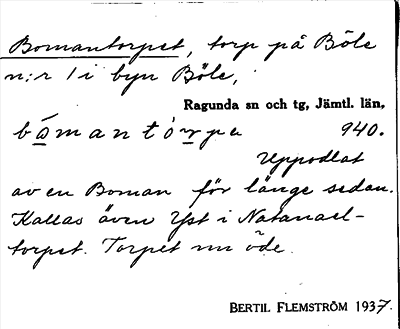 Bomantorpet, torp på Böle
n:r 1 i byn Böle,
Ragunda sn och tg, Jämtl. län,
bo̲mantórpe 940.
Uppodlat
av en Boman för länge sedan.
Kallas även Yst i Natanael-
torpet. Torpet nu öde.
BERTIL FLEMSTRÖM 1937.